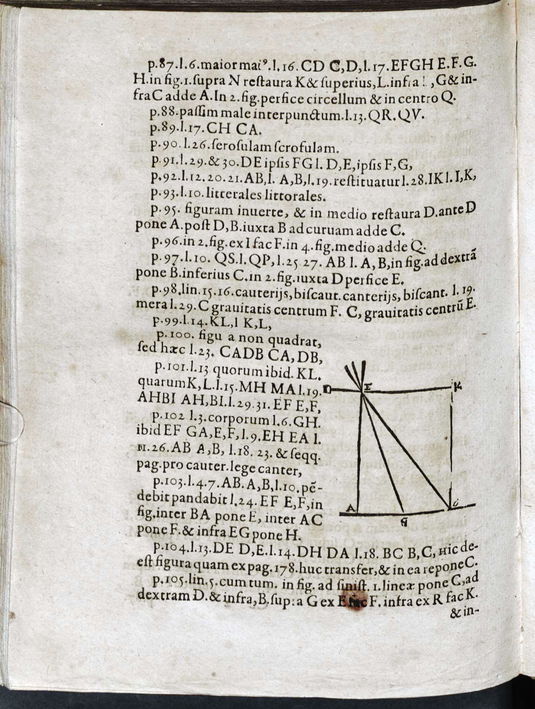 p.87.l.6.maior mai⁹.l.16. CD C,D,l.17.EFGH E.F.G.
H.in fig.1.supra N restaura K & superius,L.infra I,G& in-
fra C adde A.In 2.fig.perfice circellum & in centro Q.
p.88.passim male interpunctum.l.13.QR.QV.
p.89.l.17.CH CA.
p.90.l.26.serosulam scrofulam.
p.91.l.29.& 30.DE ipsis FG l. D,E,ipsis F,G,
p.92.l.12.20.21.AB,l. A,B,l.19.restituatur l.28.IK l.I,K,
p.93.l.10.litterales littorales.
p.95. figuram inuerte, & in medio restaura D.ante D
pone A.post D,B.iuxta B ad curuam adde C.
p.96.in 2.fig.ex I fac F.in 4.fig.medio adde Q.
p.97.l.10. QS.l.QP,l.25 27. AB l. A,B,in fig.ad dextrã
pone B.inferius C.in 2.fig.iuxta D perfice E.
p.98,lin.15.16.cauterijs, biscaut.canterijs, biscant. l. 19.
mera l.29.C grauitatis centrum F. C, grauitatis centrũ E.
p.99.l.14.KL,l K,L,
p.100. figu a non quadrat,
sed hæc l.23. CADB CA,DB,
p.101.l.13 quorum ibid. KL.
quarum K,L.l.15.MH MA l.19.
AHBI AH,BI.l.29.31. EF E,F,
p.102 l.3.corporum l.6.GH.
ibid EF GA,E,F,l.9.EH EA l.
26.AB A,B, l.18. 23. & seqq.
pag.pro cauter.lege canter,
p.103.l.4.7.AB.A,B,l.10.pẽ-
debit pandabit l.24.EF E,F,in
fig,inter BA pone E, inter AC
pone F.& infra EG pone H.
D E K
A G C
p.104.l.13.DE D,E.l.14.DH DA l.18. BC B,C, Hic de-
est figura quam ex pag.178.huc transfer,& in ea repone C.
p.105.lin.5.cum tum. in fig. ad sinist. 1.lineæ pone C,ad
dextram D.& infra,B,supra G ex E fac F. infra ex R fac K.
& in-